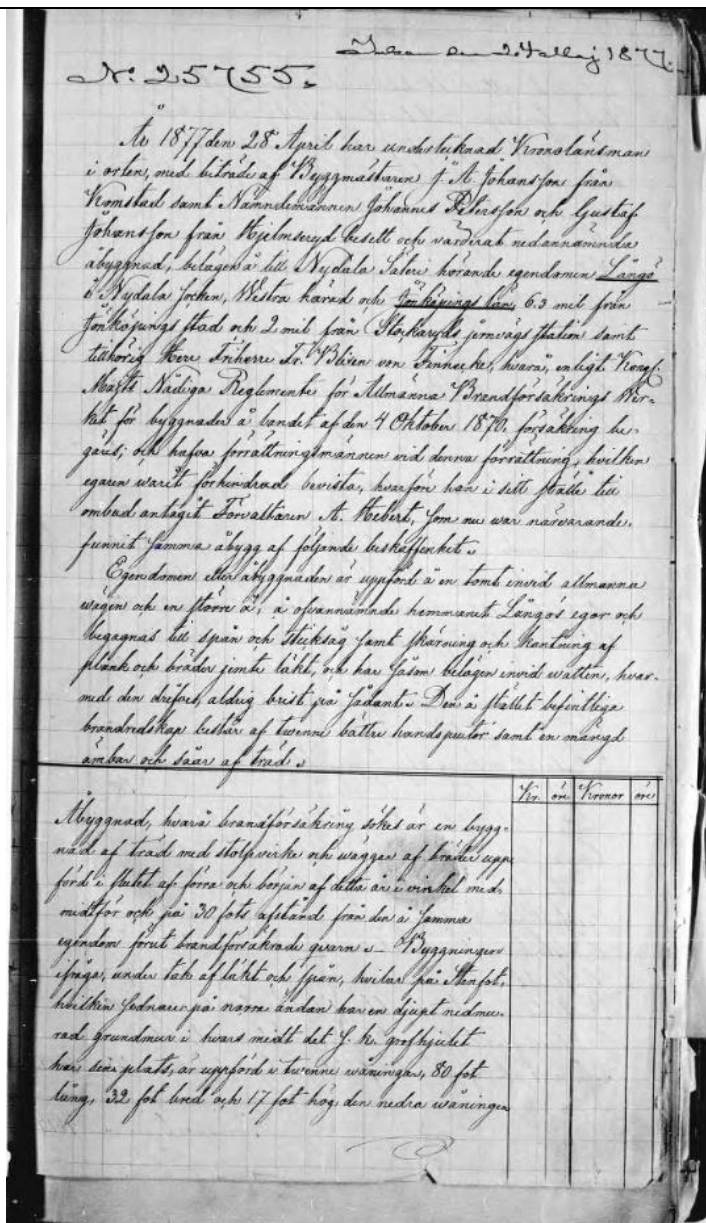 Inkom den 24 Maj 1877.
No: 25755.
År 1877 den 28 April har undertecknad Kronolänsman
i orten, med biträde af Byggmästaren J. A. Johansson från
Komstad samt Nämndemännen Johannes Petersson och Gustaf
Johansson från Hjelmseryd besett och värderat nedannämnda
åbyggnad, belägen å till Nydala Säteri hörande egendomen Långö
i Nydala socken, Westra härad och Jönköpings län, 6.3 mil från
Jönköpings stad och 2 mil från Stockaryds jernvägs station samt
tillhörig Herr Friherre Fr. Blixen von Finnecke, hvarå, enligt Kongl.
Maj:ts Nådiga Reglemente för Allmänna Brandförsäkrings Wer-
ket för byggnader å landet af den 4 Oktober 1870, försäkring be-
gäres; och hafva förrättningsmännen vid denna förrättning, hvilken
egaren warit förhindrad bevista, hvarför han i sitt ställe till
ombud antagit Förvaltaren A. Hebert, som nu war närvarande,
funnit samma åbygg af följande beskaffenhet.
Egendomen eller åbyggnaden är uppförd å en tomt invid allmänna
wägen och en större å, å ofvannämnde hemmanet Långös egor och
begagnas till spån och sticksåg samt skärning och kantning af
plank och bräder jemte läkt, och har såsom belägen invid watten, hvar-
med den drifves, aldrig brist på sådant. Den å stället befintliga
brandredskap består af twenne bättre handsprutor samt en mängd
ämbar och såar af träd.
Kr. öre Kronor öre
Åbyggnad, hvarå brandförsäkring sökes är en bygg-
nad af träd med stolpvirke och wäggar af bräder upp
förd i slutet af förra och början af detta år i vinkel med,
midtför och på 30 fots afstånd från den å samma
egendom förut brandförsäkrade qvarn. Byggningen
ifråga, under tak af läkt och spån, hvilar på Stenfot,
hvilken sednare på norra ändan har en djupt nedmu-
rad grundmur i hvars midt det s. k. grofhjulet
har sin plats, är uppförd i twenne wåningar, 80 fot
lång, 32 fot bred och 17 fot hög, den nedra wåningen